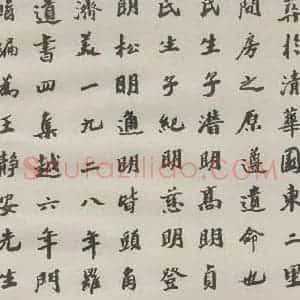 葬於清華園東二里
間房之原蓋遺命也
民生子潛明高明貞
民生子紀明慈明登
朗松明通明皆頭角
濟美一九二八年羅
遺書四集越六年門
編為王靜安先生
Shufaziliao.COM